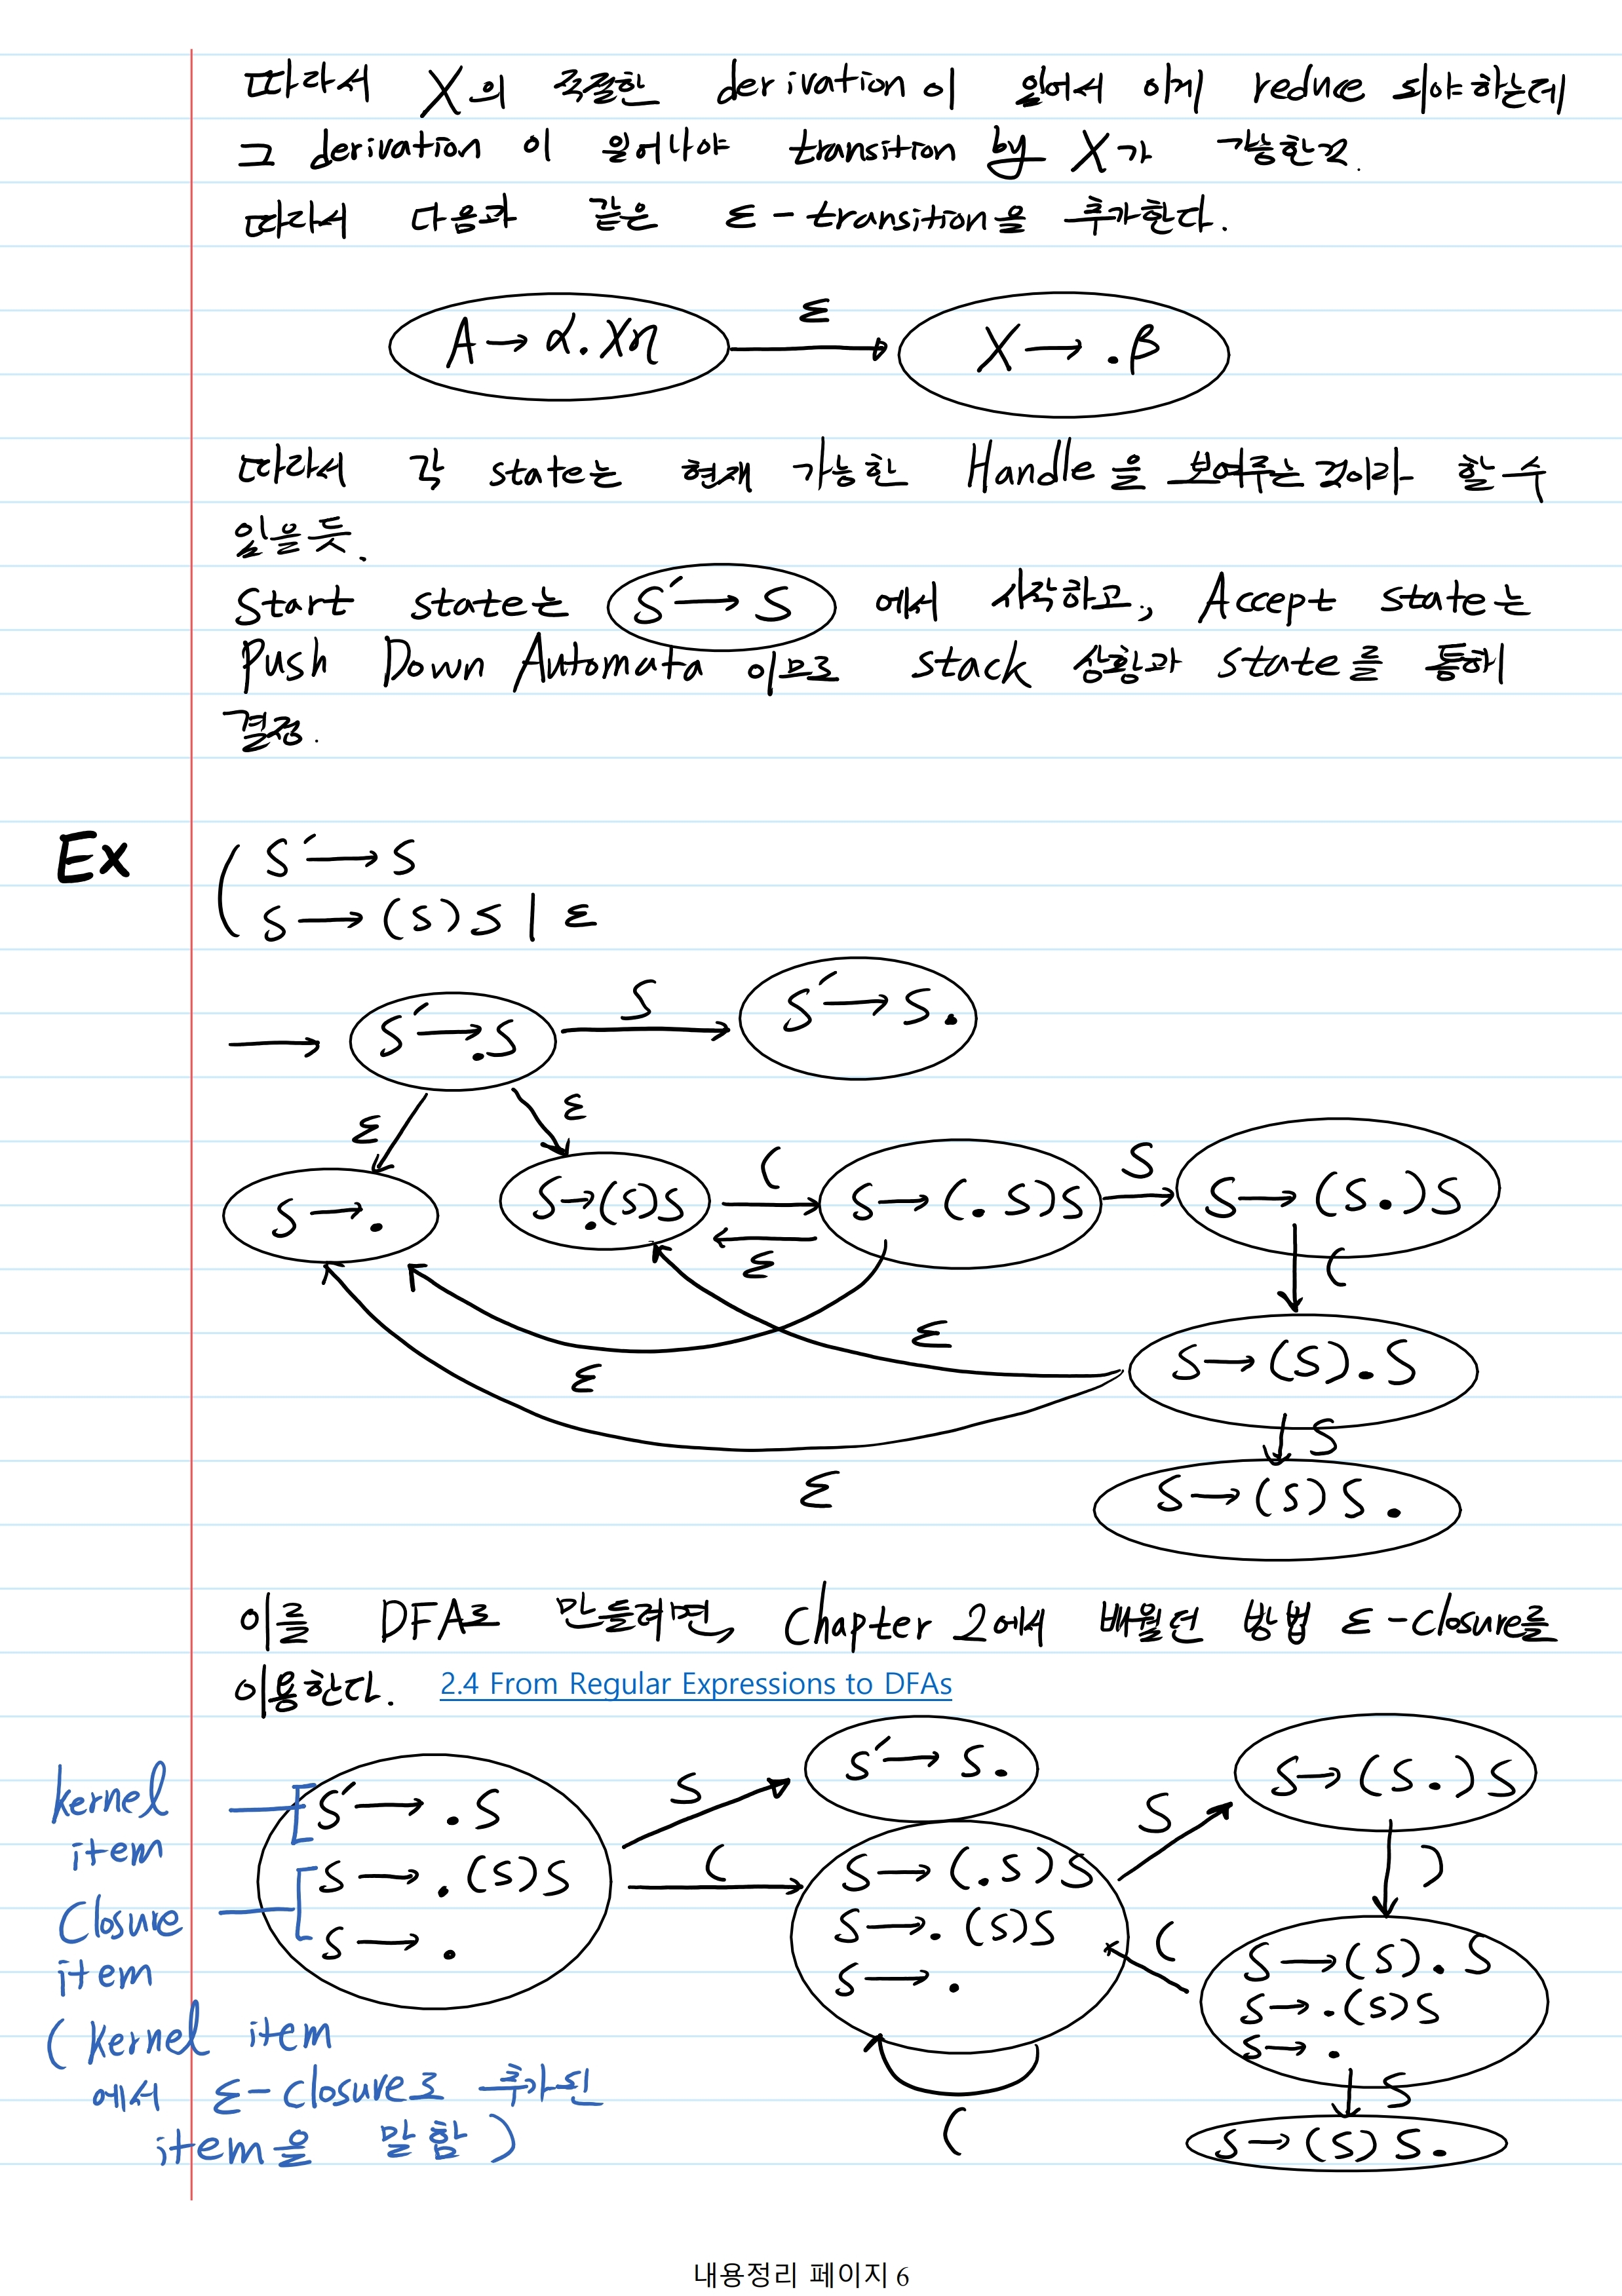 따라서 X의 적절한 derivation이 있어서 이게 reduce 되야하는데
그 derivation이 일어나야 transition by X가 가능한것.
따라서 다음과 같은 ε-transition을 추가한다.
A → α.Xη
ε
X → .β
따라서 각 state는 현재 가능한 Handle을 보여주는 것이라 할 수
있을 듯.
Start state는 S′ → S 에서 시작하고, Accept state는
Push Down Automata 이므로 stack 상황과 state를 통해
결정.
Ex
S′ → S
S → (S)S | ε
S′ → .S
S
S′ → S.
ε
ε
S → .
S → .(S)S
(
ε
S → (.S)S
S
S → (S.)S
(
ε
ε
S → (S).S
S
ε
S → (S)S.
이를 DFA로 만들려면, Chapter 2에서 배웠던 방법 ε-closure를
이용한다. 2.4 From Regular Expressions to DFAs
kernel
item
Closure
item
(kernel item
에서 ε-closure로 추가된
item을 말함)
S′ → .S
S → .(S)S
S → .
S
S′ → S.
(
S → (.S)S
S → .(S)S
S → .
(
S
S → (S.)S
)
(
S → (S).S
S → .(S)S
S → .
S
S → (S)S.
내용정리 페이지 6